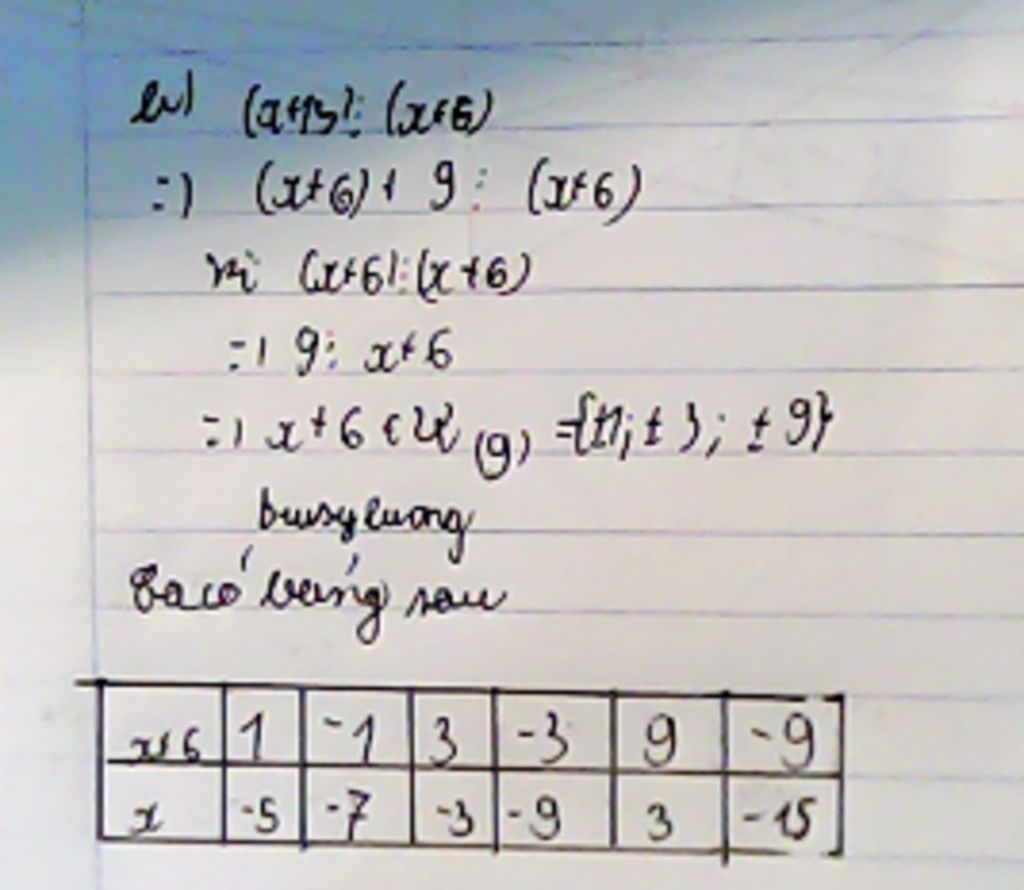 (x+15)⋮(x+6)
=) (x+6)+9⋮(x+6)
vì (x+6)⋮(x+6)
=) 9⋮x+6
=) x+6 ∈ Ư(9) ={±1;±3;±9}
Ta có bảng sau
x+6 1 -1 3 -3 9 -9
x -5 -7 -3 -9 3 -15